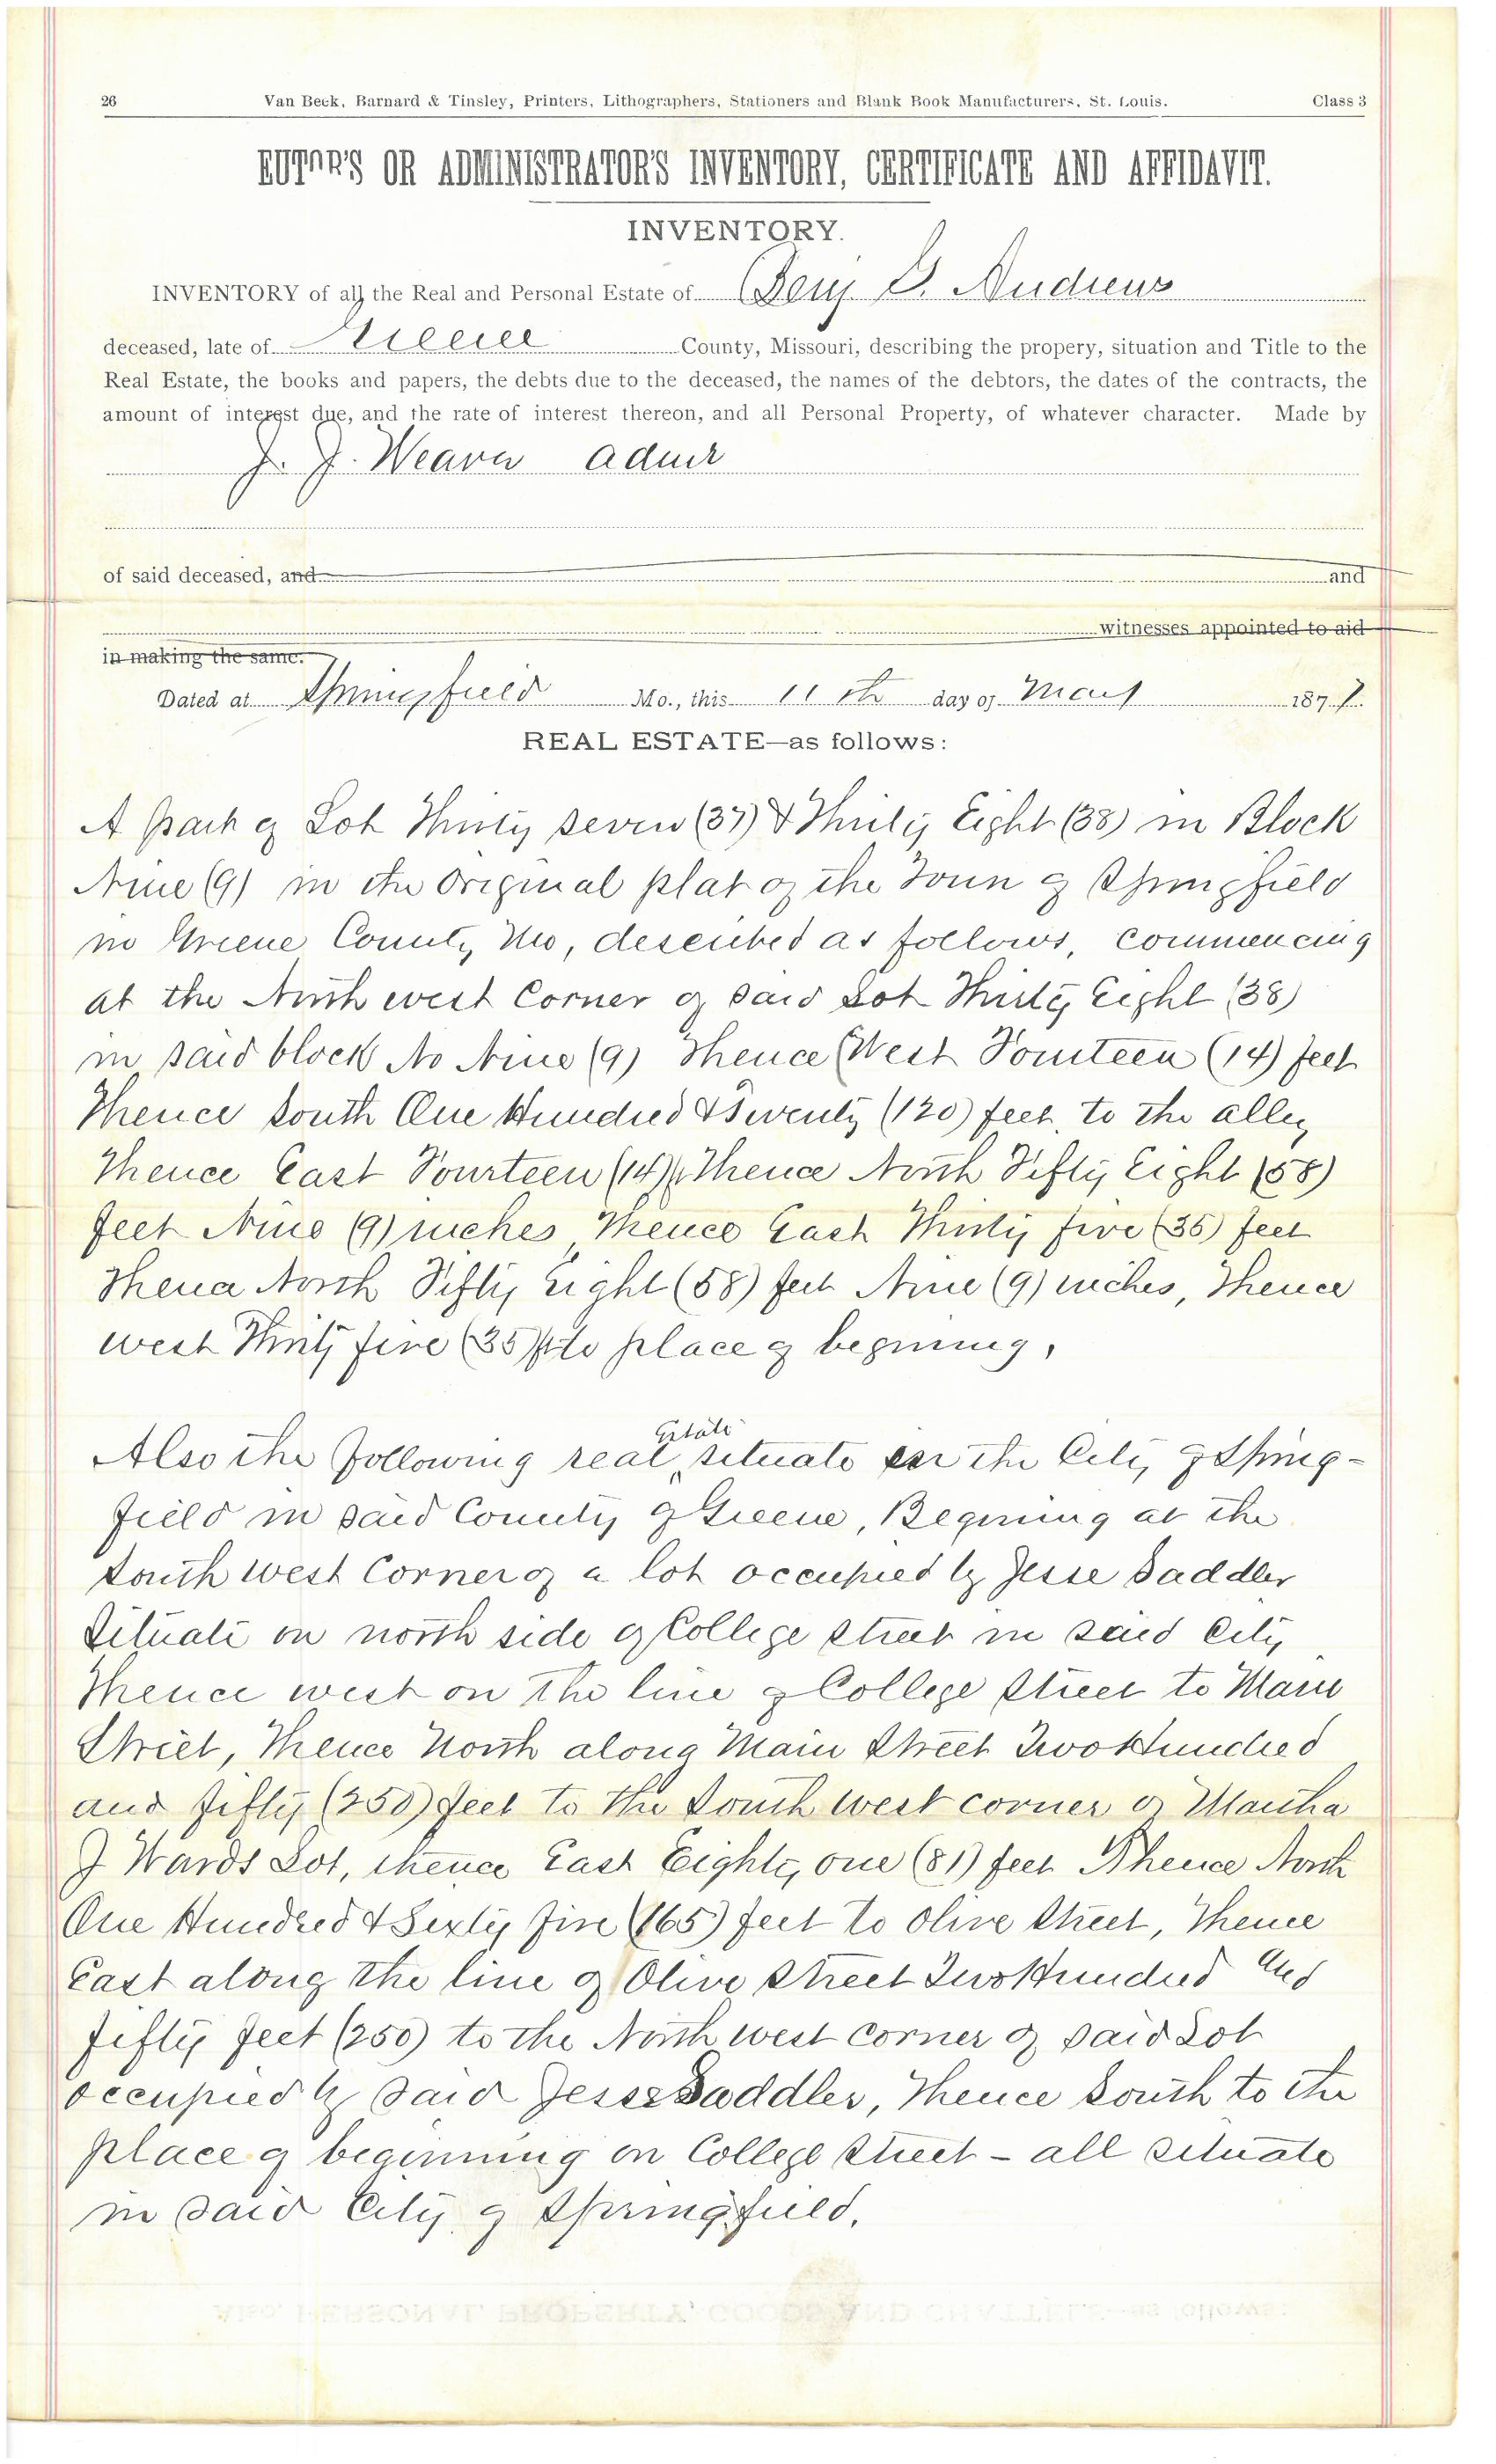 26 Van Beek, Barnard & Tinsley, Printers, Lithographers, Stationers and Blank Book Manufacturers, St. Louis. Class 3
EUTOR'S OR ADMINISTRATOR'S INVENTORY, CERTIFICATE AND AFFIDAVIT.
INVENTORY.
INVENTORY of all the Real and Personal Estate of Benj G. Andrews
deceased, late of Greene County, Missouri, describing the propery, situation and Title to the
Real Estate, the books and papers, the debts due to the deceased, the names of the debtors, the dates of the contracts, the
amount of interest due, and the rate of interest thereon, and all Personal Property, of whatever character. Made by
J. J. Weaver admr
of said deceased, and and
witnesses appointed to aid
in making the same.
Dated at Springfield Mo., this 11th day of May 1877.
REAL ESTATE—as follows:
A part of Lot Thirty seven (37) & Thirty Eight (38) in Block
Nine (9) in the Original plat of the Town of Springfield
in Greene County Mo, described as follows, commencing
at the North west Corner of said Lot Thirty Eight (38)
in said block No Nine (9) Thence West Fourteen (14) feet
Thence South One Hundred & Twenty (120) feet, to the alley
Thence East Fourteen (14) ft Thence North Fifty Eight (58)
feet Nine (9) inches, Thence East Thirty five (35) feet
Thence North Fifty Eight (58) feet Nine (9) inches, Thence
west Thirty five (35) ft to place of begining,
Also the following real Estate situate in the City of Spring-
field in said County of Greene, Begining at the
South west Corner of a lot occupied by Jesse Saddler
Situate on north side of College Street in said City
Thence west on the line of College Street to Main
Street, Thence North along Main Street Two Hundred
and fifty (250) feet to the South west corner of Martha
J Wards Lot, thence East Eighty one (81) feet Thence North
One Hundred & Sixty five (165) feet to Olive Street, Thence
East along the line of Olive Street Two Hundred and
fifty feet (250) to the North west corner of said Lot
occupied by said Jesse Saddler, Thence South to the
place of beginning on College Street - all situate
in said City of Springfield.